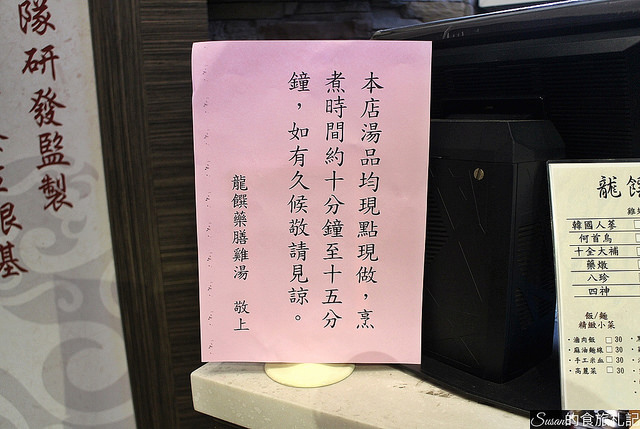 隊研發監製
根基
本店湯品均現點現做，烹
煮時間約十分鐘至十五分
鐘，如有久候敬請見諒。
龍饌藥膳雞湯 敬上
龍饌
韓國人蔘
何首烏
十全大補
藥燉
八珍
四神
飯/麵
精緻小菜
·滷肉飯 □ 30
·麻油麵線 □ 30
·手工米血 □ 30
·高麗菜 □ 30
Susan的食旅札記